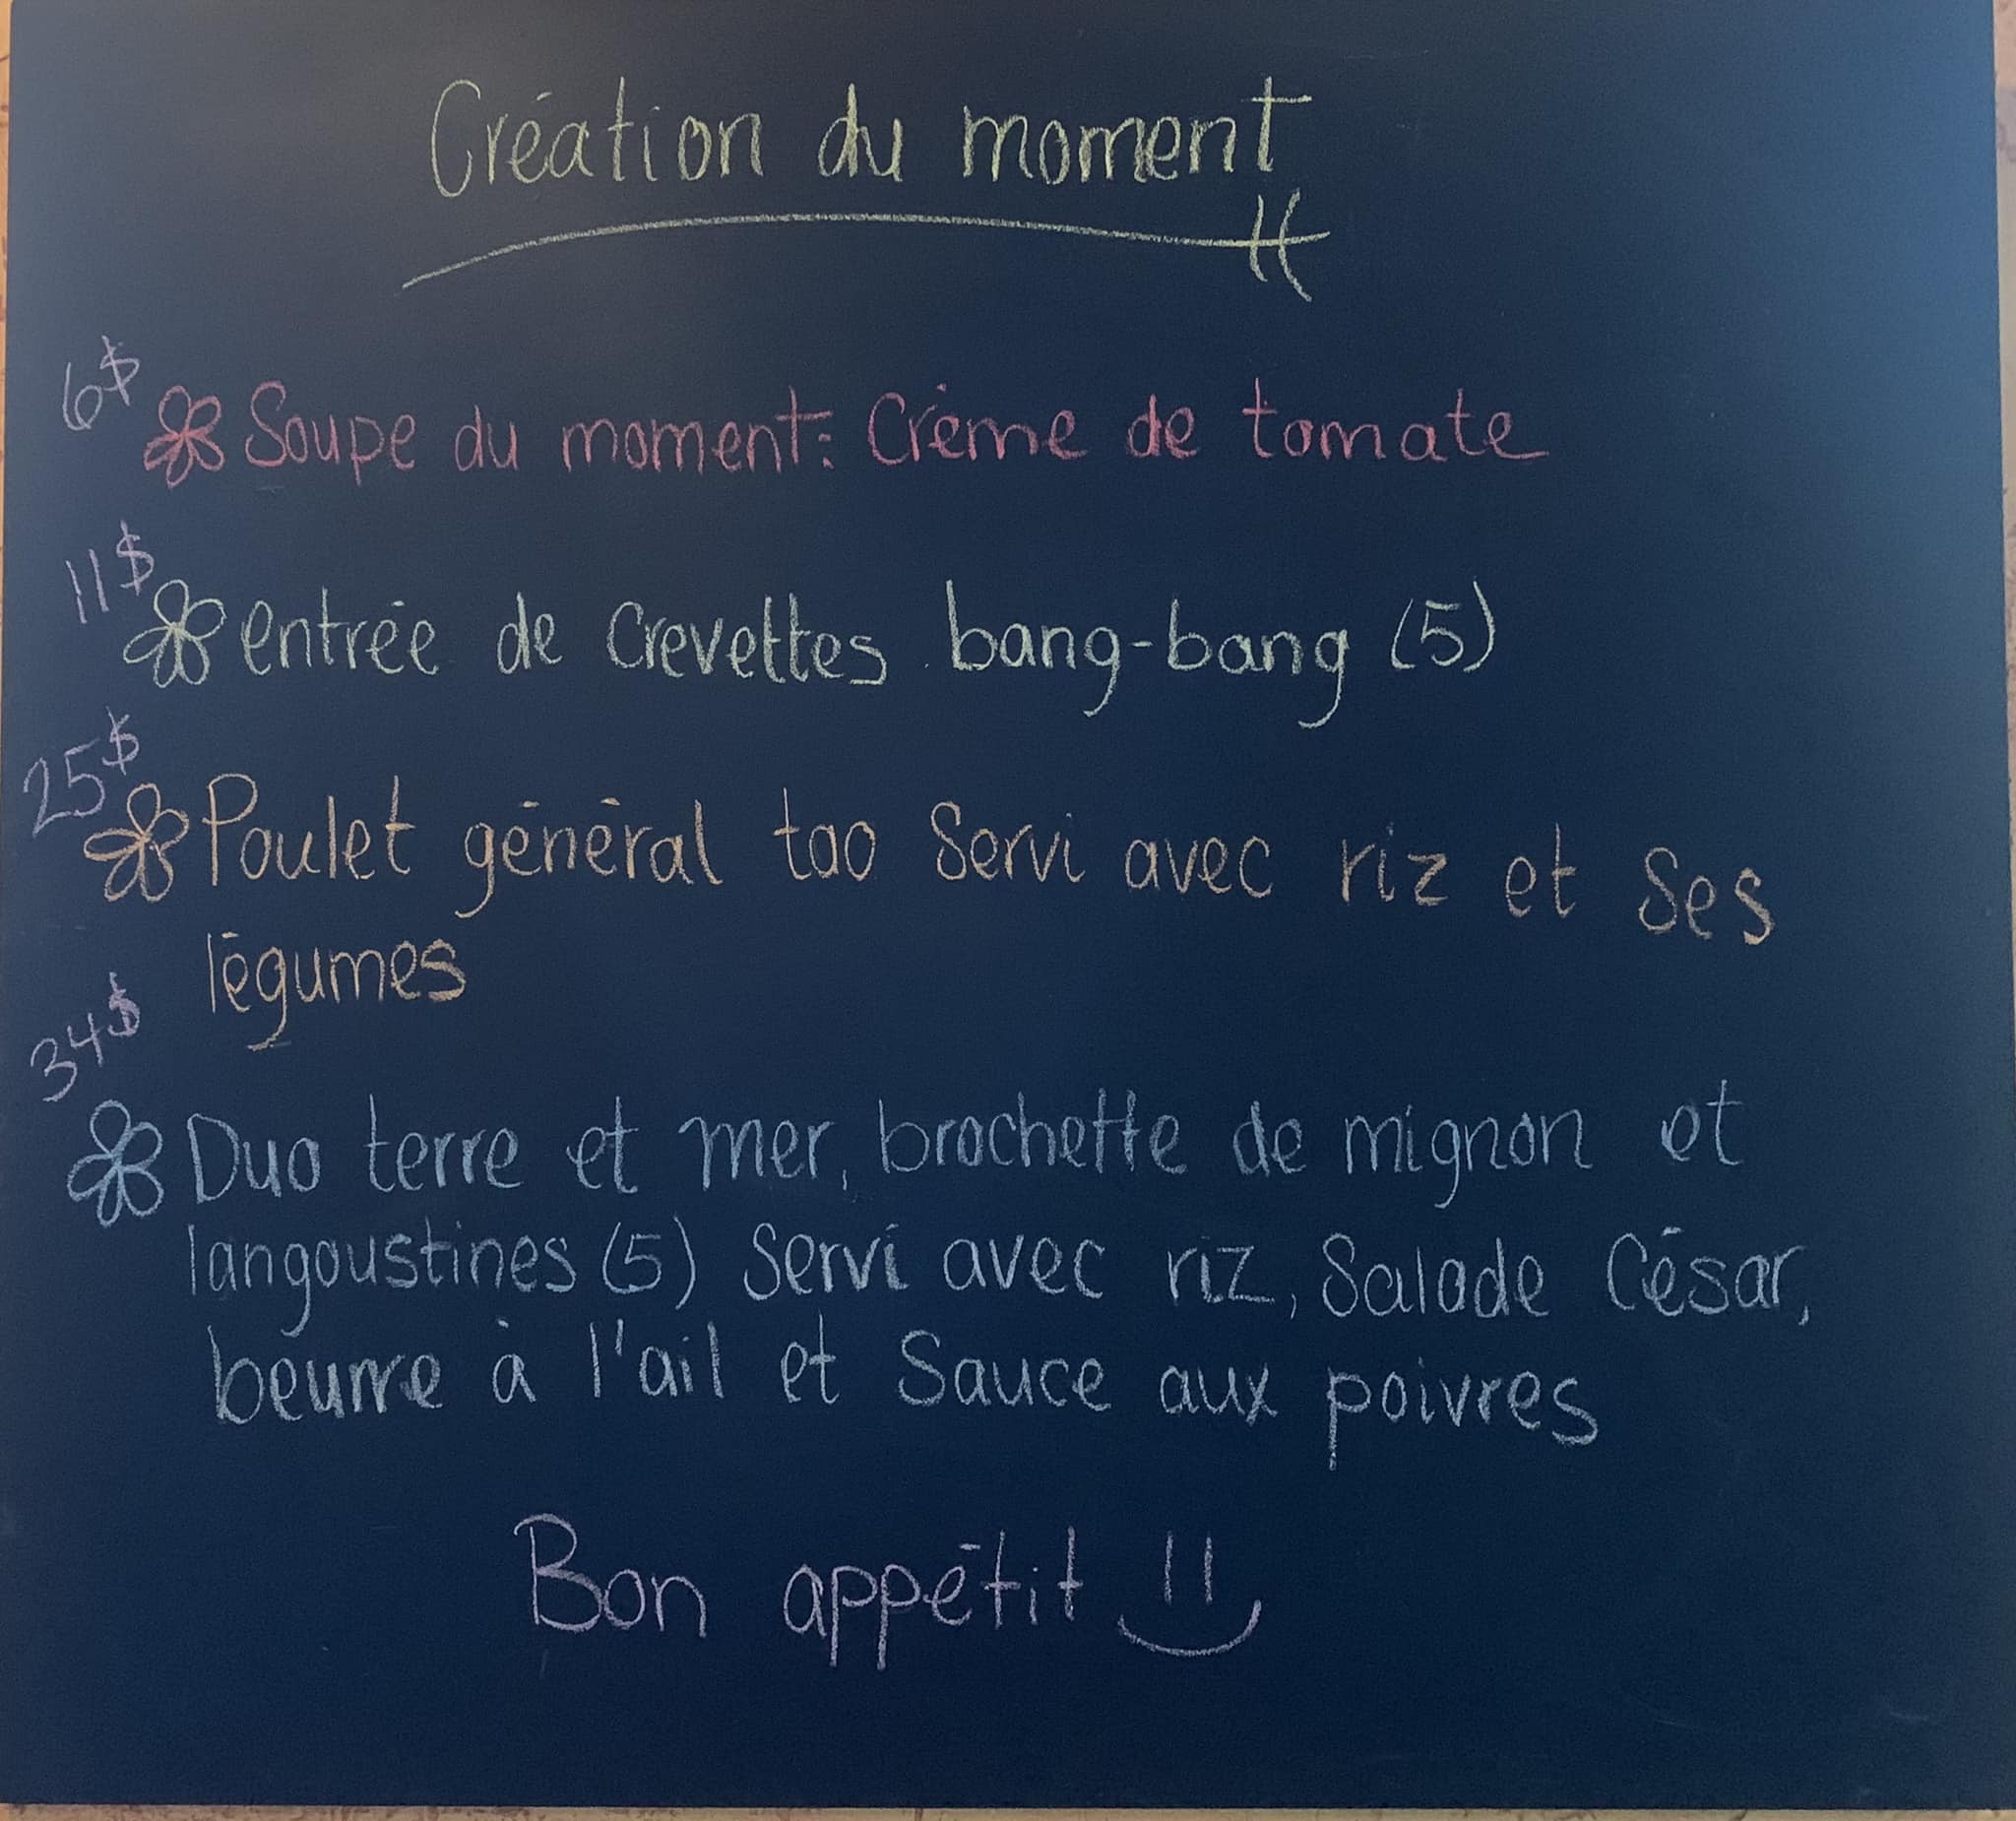 Création du moment
6$
Soupe du moment: Crème de tomate
11$
entrée de crevettes bang-bang (5)
25$
Poulet général tao Servi avec riz et Ses
légumes
34$
Duo terre et mer, brochette de mignon et
langoustines (5) Servi avec riz, Salade César,
beurre à l'ail et Sauce aux poivres
Bon appétit